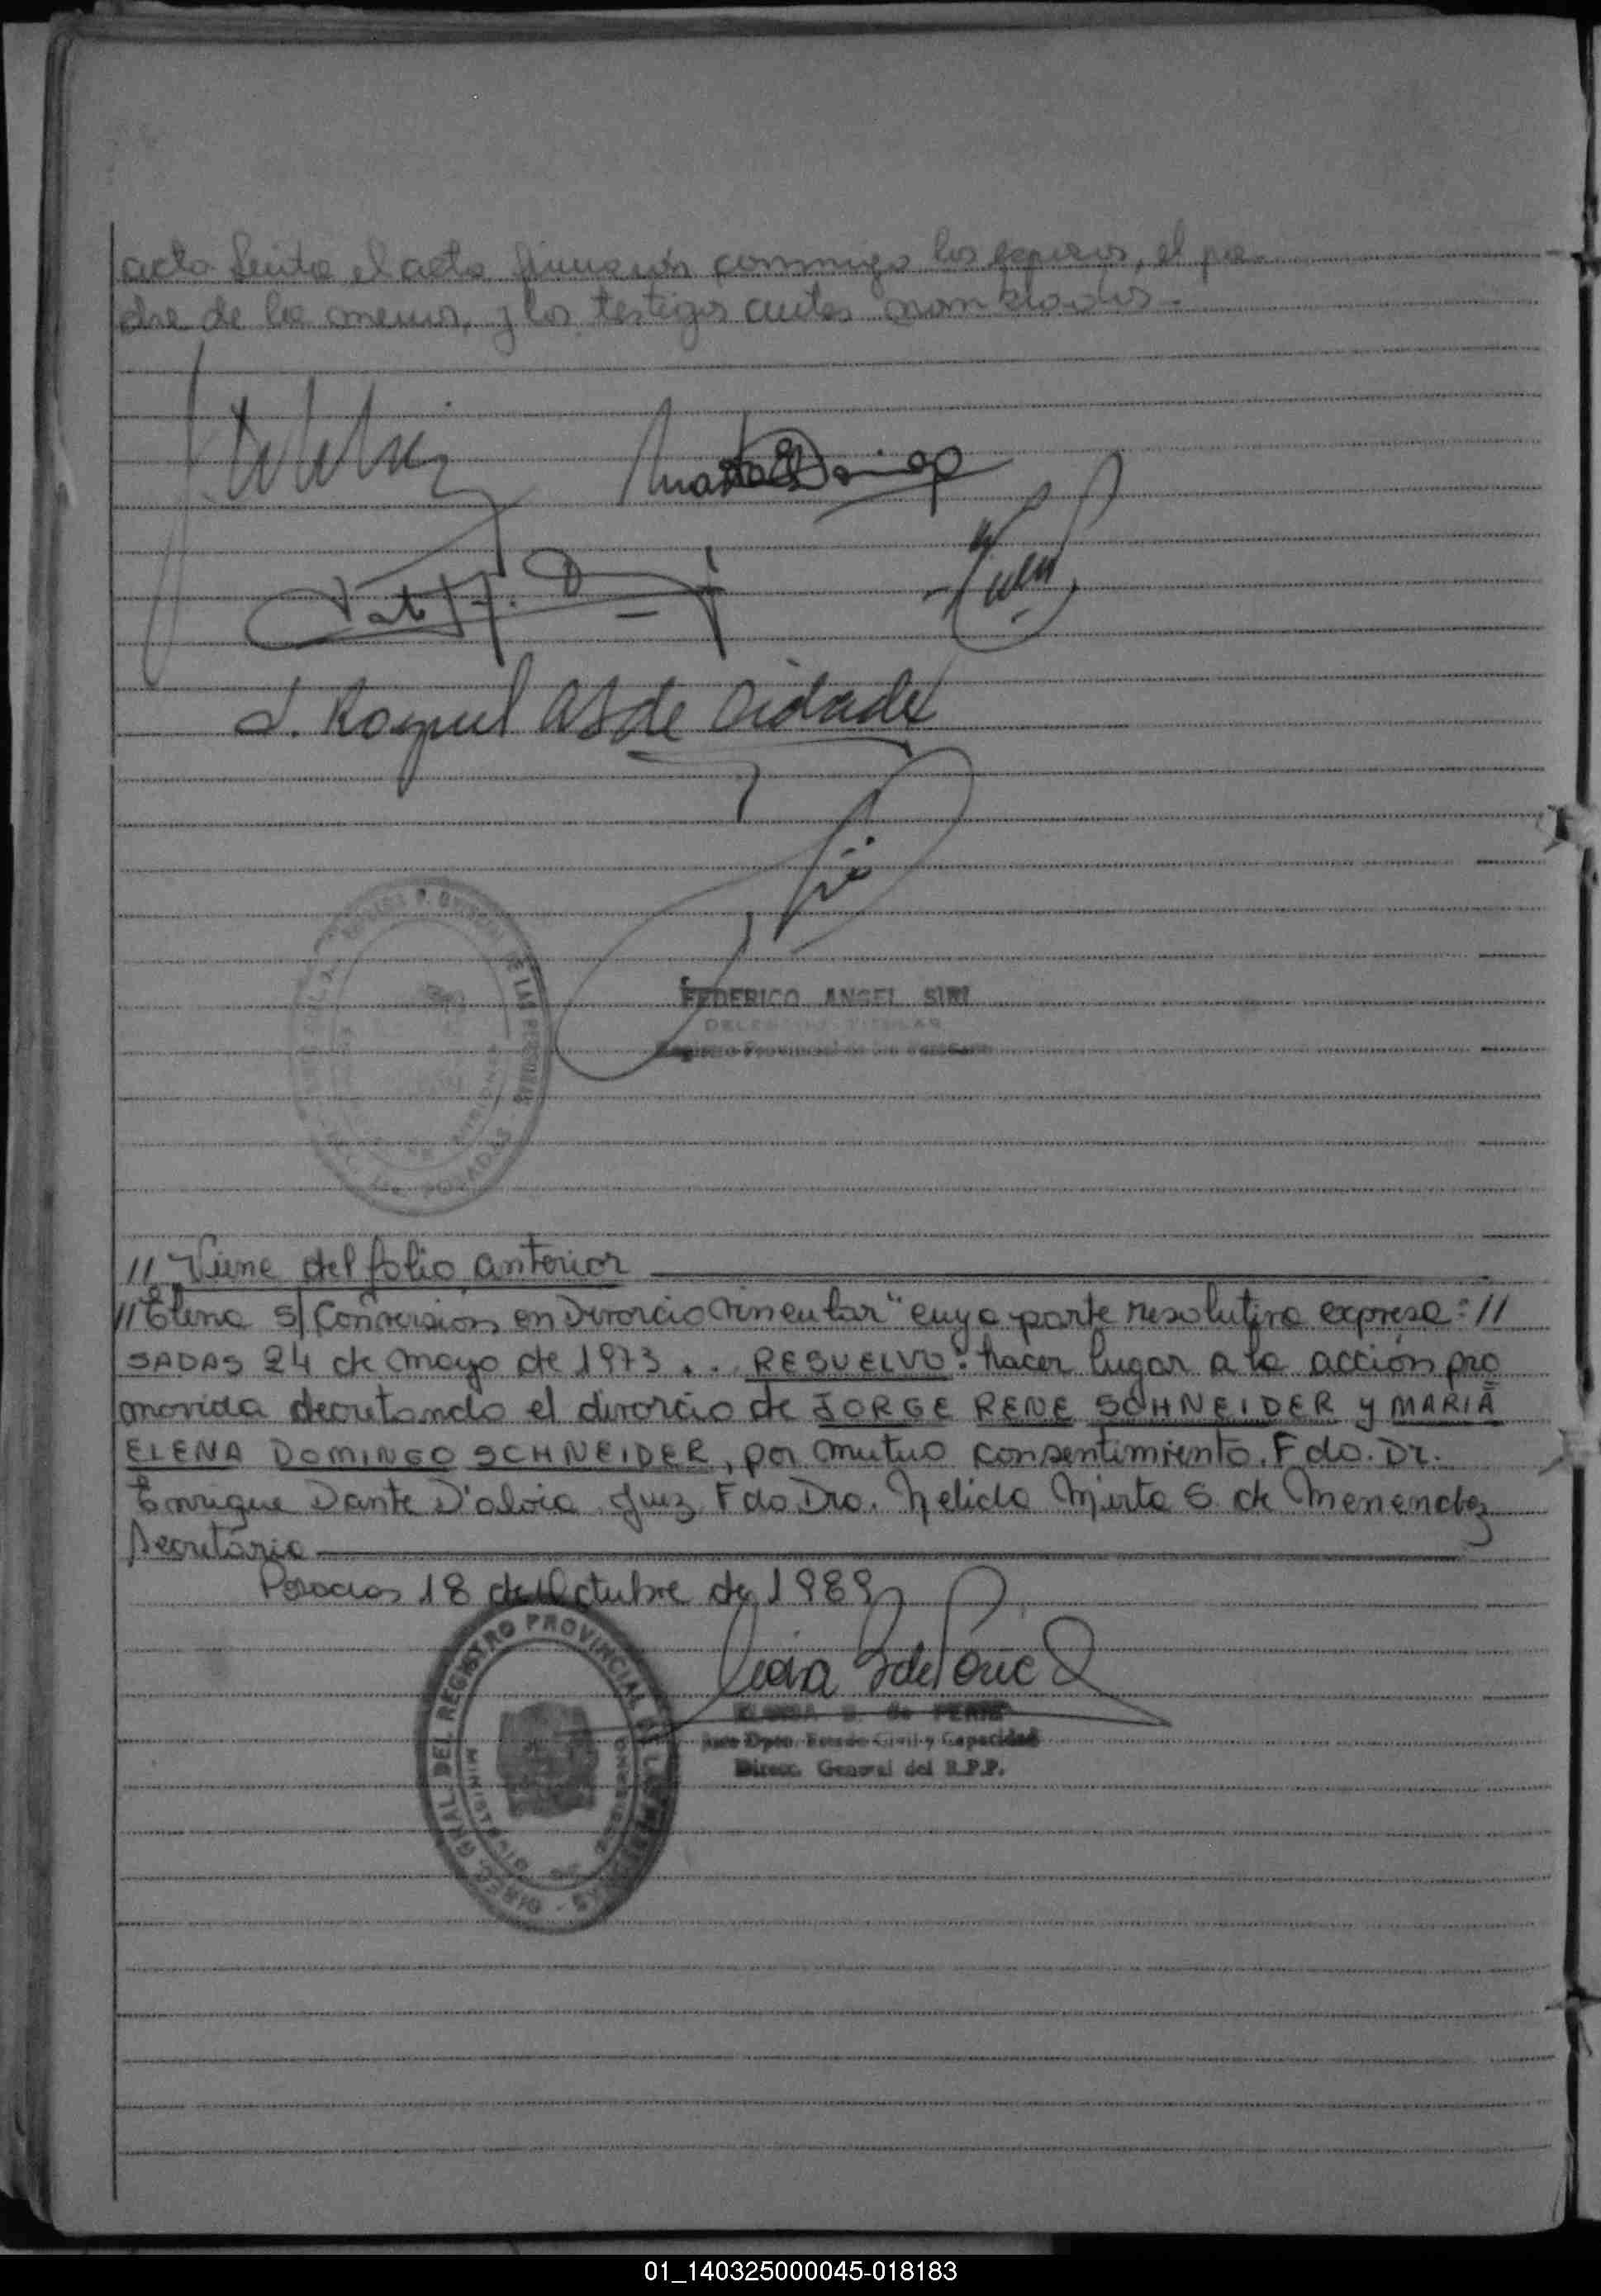 acto Leida el acta firmaron conmigo los esposos, el pa-
dre de la menor, y los testigos antes nombrados.-
FEDERICO ANGEL SIRI
DELEGADO TITULAR
Registro Provincial de las Personas
POSADAS
// Viene del folio anterior
//Elena s/ Conversión en Divorcio Vincular" cuya parte resolutiva expresa: //
SADAS 24 de mayo de 1973 . .. RESUELVO: hacer lugar a la acción pro
movida decretando el divorcio de JORGE RENE SCHNEIDER y MARIA
ELENA DOMINGO SCHNEIDER, por mutuo consentimiento. Fdo. Dr.
Enrique Dante D'aloia Juez Fdo Dra. Nelida Mirta S. de Menendez
Secretaria
Posadas 18 de Octubre de 1989
DIREC. GRAL. DEL REGISTRO PROVINCIAL DE LAS PERSONAS
de PERIE
Jefe Dpto. Estado Civil y Capacidad
Direcc. General del R.P.P.
01_140325000045-018183